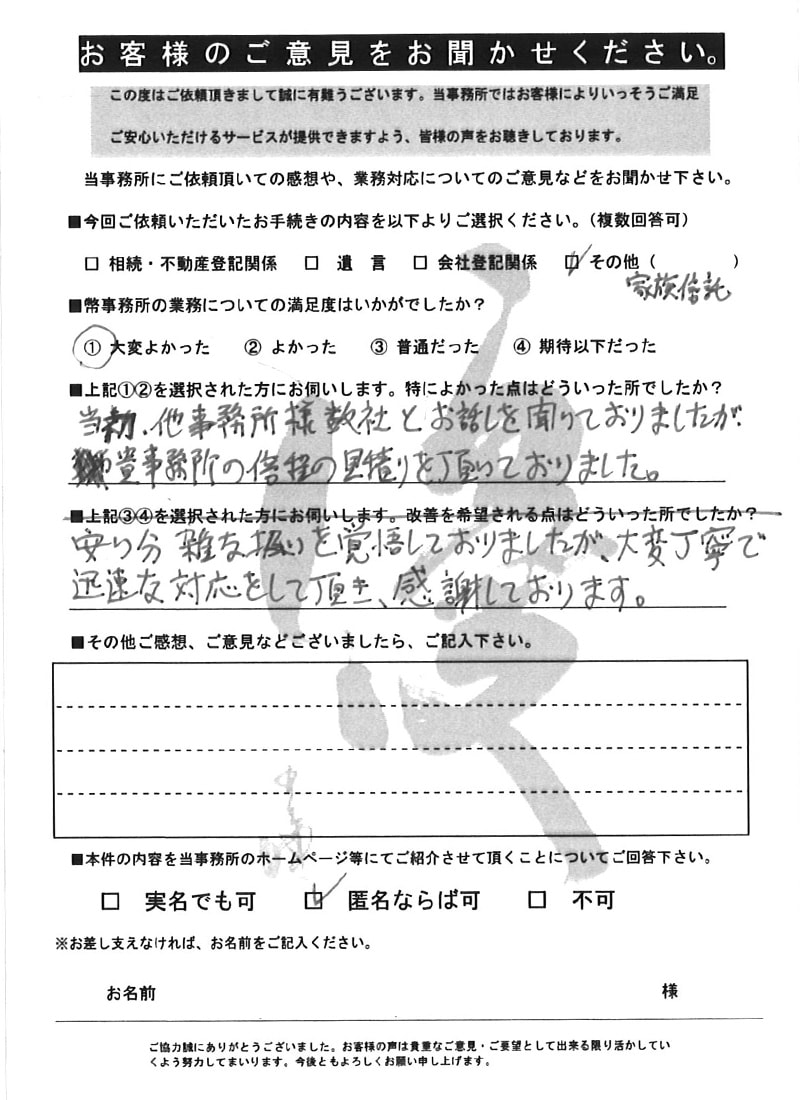 お客様のご意見をお聞かせください。
この度はご依頼頂きまして誠に有難うございます。当事務所ではお客様によりいっそうご満足
ご安心いただけるサービスが提供できますよう、皆様の声をお聴きしております。
当事務所にご依頼頂いての感想や、業務対応についてのご意見などをお聞かせ下さい。
■今回ご依頼いただいたお手続きの内容を以下よりご選択ください。（複数回答可）
□ 相続・不動産登記関係 □ 遺 言 □ 会社登記関係 ☑ その他（ ）
家族信託
■幣事務所の業務についての満足度はいかがでしたか？
① 大変よかった ② よかった ③ 普通だった ④ 期待以下だった
■上記①②を選択された方にお伺いします。特によかった点はどういった所でしたか？
当初、他事務所様数社とお話しを聞けておりましたが、
貴事務所の倍程の見積りを頂いておりました。
■上記③④を選択された方にお伺いします。改善を希望される点はどういった所でしたか？
安い分 雑な扱いを覚悟しておりましたが、大変丁寧で
迅速な対応をして頂き、感謝しております。
■その他ご感想、ご意見などございましたら、ご記入下さい。
■本件の内容を当事務所のホームページ等にてご紹介させて頂くことについてご回答下さい。
□ 実名でも可 ☑ 匿名ならば可 □ 不可
※お差し支えなければ、お名前をご記入ください。
お名前 様
ご協力誠にありがとうございました。お客様の声は貴重なご意見・ご要望として出来る限り活かしてい
くよう努力してまいります。今後ともよろしくお願い申し上げます。